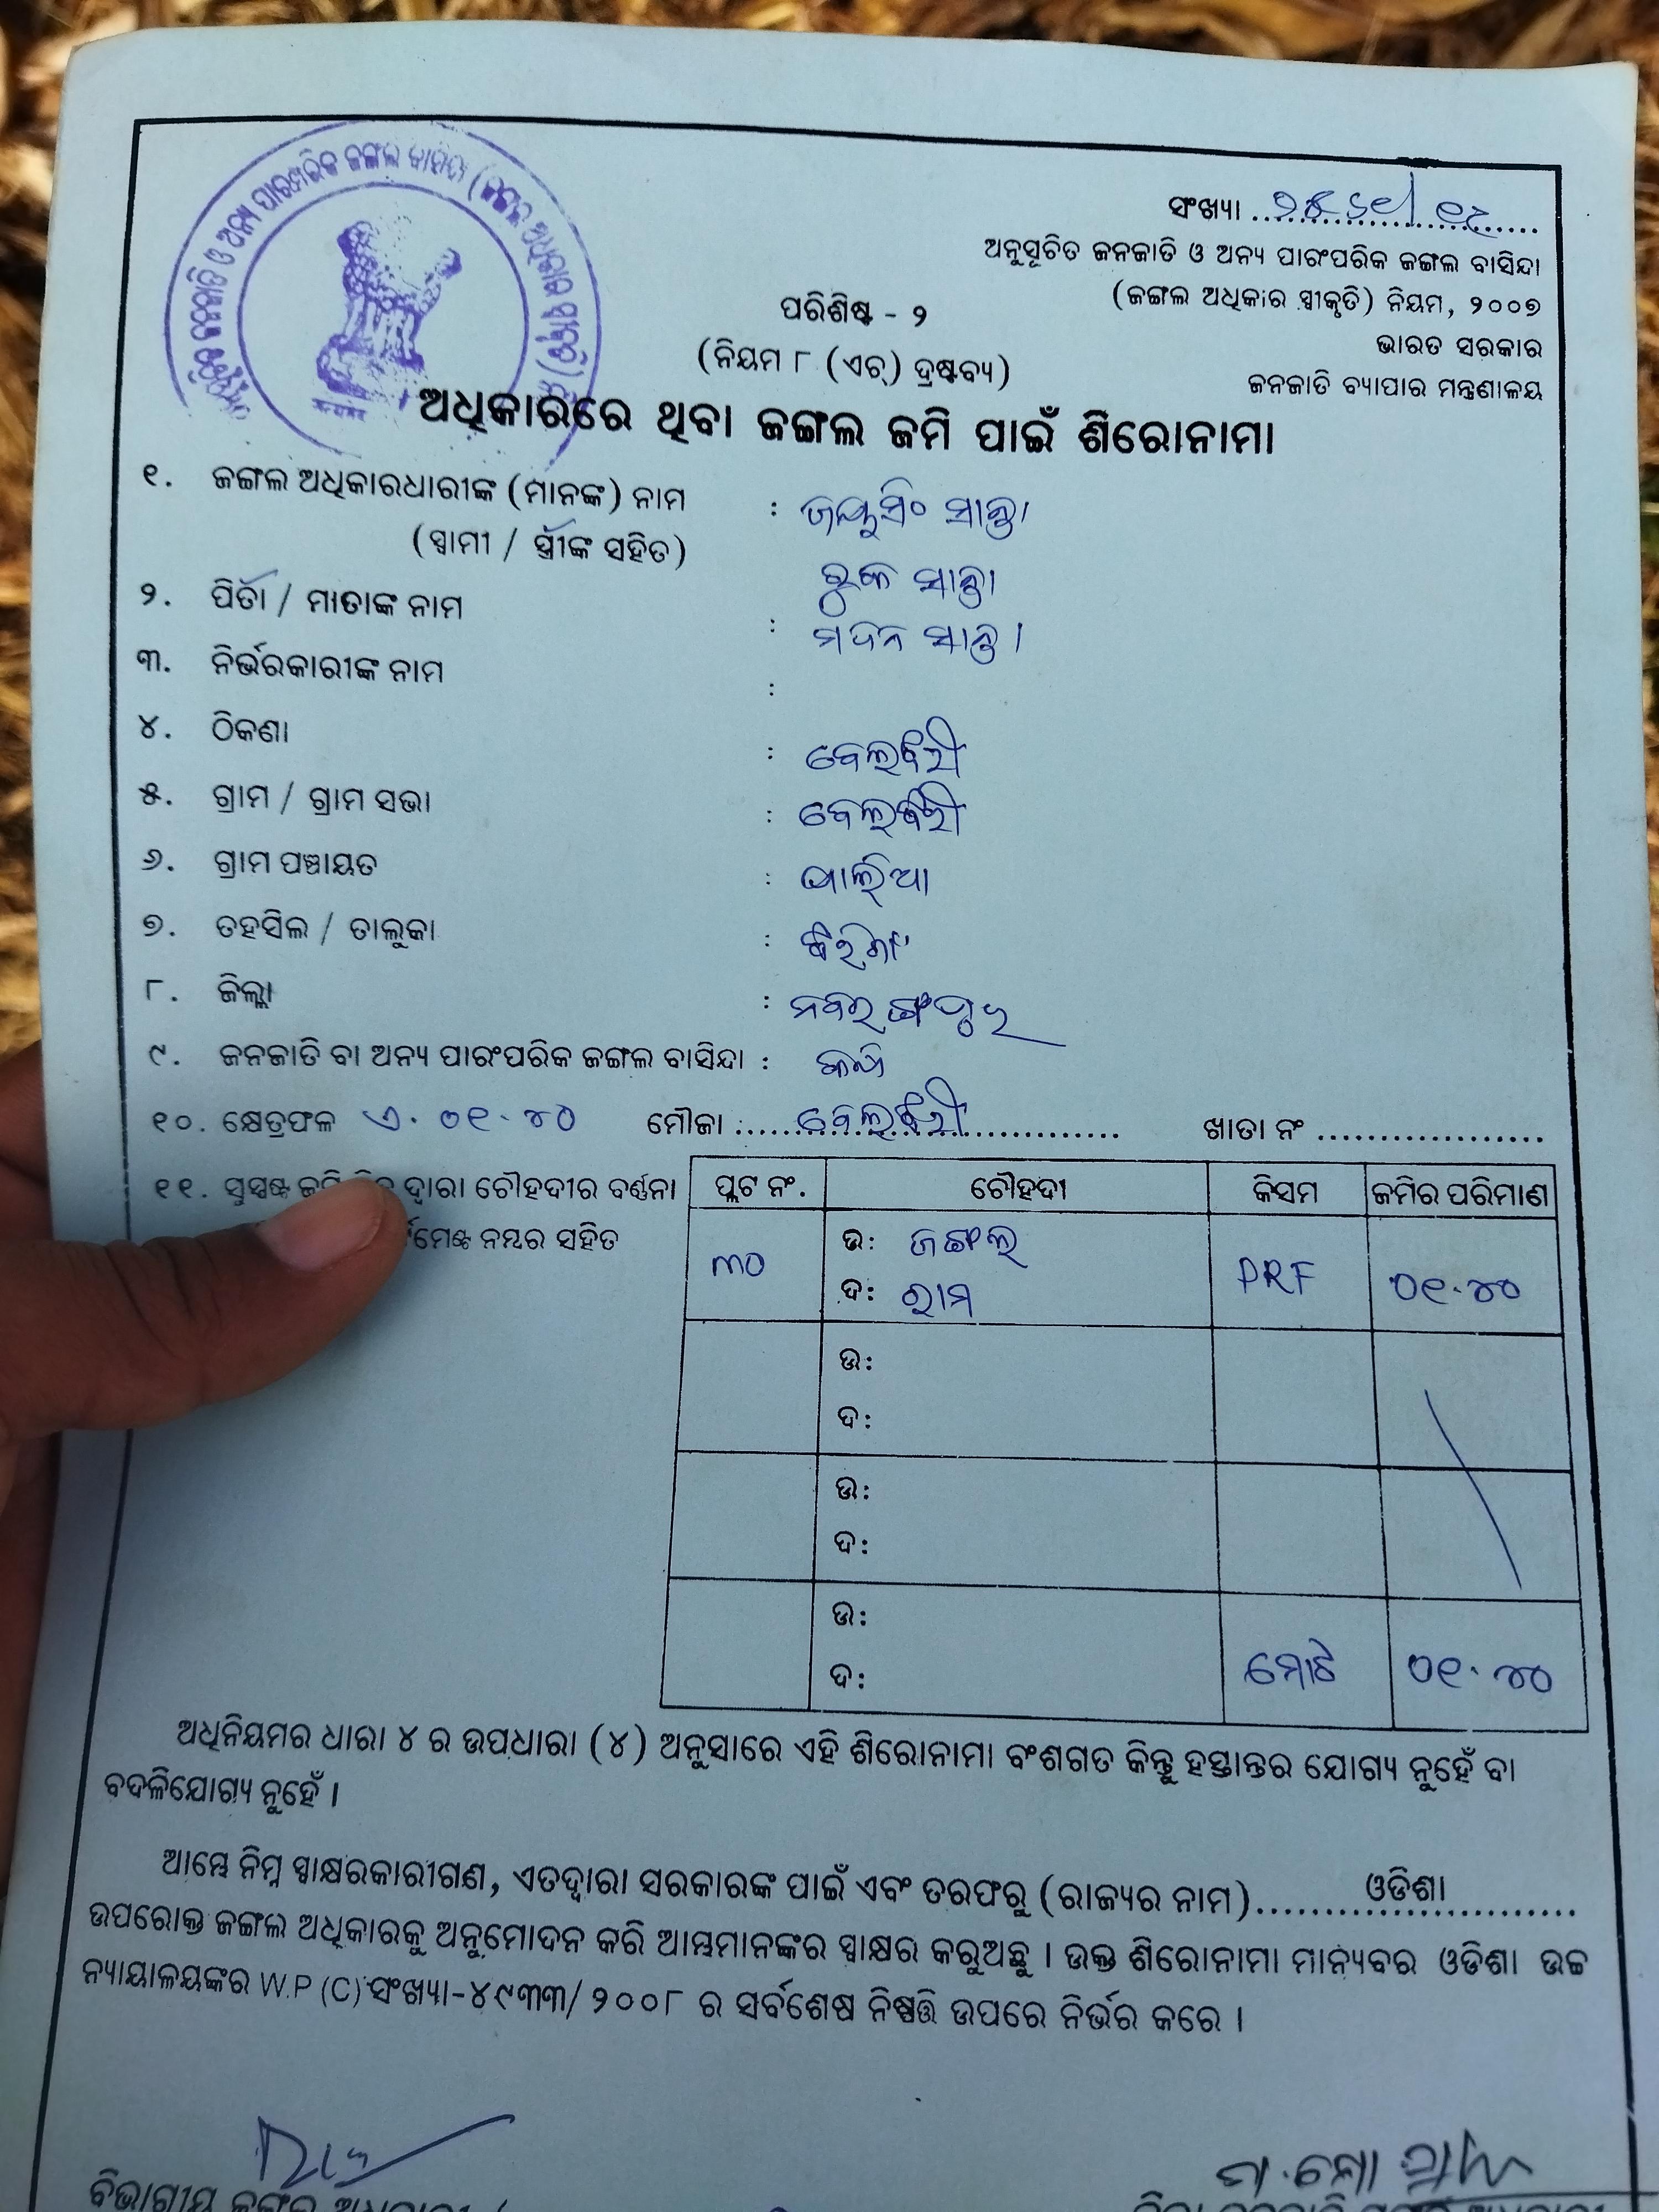 ସଂଖ୍ୟା
ଅନୁସୂଚିତ ଜନଜାତି ଓ ଅନ୍ୟ ପାରଂପରିକ ଜଙ୍ଗଲ ବାସିନ୍ଦା
(ଜଙ୍ଗଲ ଅଧିକାର ସ୍ୱୀକୃତି) ନିୟମ, ୨୦୦୭
ଭାରତ ସରକାର
ଜନଜାତି ବ୍ୟାପାର ମନ୍ତ୍ରଣାଳୟ
ପରିଶିଷ୍ଟ - ୨
(ନିୟମ ୮ (ଏଚ୍) ଦ୍ରଷ୍ଟବ୍ୟ)
ଅଧିକାରରେ ଥିବା ଜଙ୍ଗଲ ଜମି ପାଇଁ ଶିରୋନାମା
୧. ଜଙ୍ଗଲ ଅଧିକାରଧାରୀଙ୍କ (ମାନଙ୍କ) ନାମ : ସାନ୍ତା
(ସ୍ୱାମୀ / ସ୍ତ୍ରୀଙ୍କ ସହିତ) ସାନ୍ତା
୨. ପିତା / ମାତାଙ୍କ ନାମ : ମଦନ ସାନ୍ତା
୩. ନିର୍ଭରକାରୀଙ୍କ ନାମ :
୪. ଠିକଣା :
୫. ଗ୍ରାମ / ଗ୍ରାମ ସଭା :
୬. ଗ୍ରାମ ପଞ୍ଚାୟତ :
୭. ତହସିଲ / ତାଲୁକା :
୮. ଜିଲ୍ଲା : ନବରଙ୍ଗପୁର
୯. ଜନଜାତି ବା ଅନ୍ୟ ପାରଂପରିକ ଜଙ୍ଗଲ ବାସିନ୍ଦା :
୧୦. କ୍ଷେତ୍ରଫଳ ଏ. ୦୧.୪୦ ମୌଜା ଖାତା ନଂ
୧୧. ସୁସ୍ପଷ୍ଟ ଦ୍ୱାରା ଚୌହଦୀର ବର୍ଣ୍ଣନା
ନମ୍ବର ସହିତ
ପ୍ଲଟ ନଂ. ଚୌହଦୀ କିସମ ଜମିର ପରିମାଣ
୩୦ ଉ: ଜଙ୍ଗଲ PRF ୦୧.୪୦
ଦ: ରାମ
ଉ:
ଦ:
ଉ:
ଦ:
ଉ:
ଦ: ମୋଟ ୦୧.୪୦
ଅଧିନିୟମର ଧାରା ୪ ର ଉପଧାରା (୪) ଅନୁସାରେ ଏହି ଶିରୋନାମା ବଂଶଗତ କିନ୍ତୁ ହସ୍ତାନ୍ତର ଯୋଗ୍ୟ ନୁହେଁ ବା
ବଦଳିଯୋଗ୍ୟ ନୁହେଁ ।
ଆମ୍ଭେ ନିମ୍ନ ସ୍ୱାକ୍ଷରକାରୀଗଣ, ଏତଦ୍ୱାରା ସରକାରଙ୍କ ପାଇଁ ଏବଂ ତରଫରୁ (ରାଜ୍ୟର ନାମ) ଓଡିଶା
ଉପରୋକ୍ତ ଜଙ୍ଗଲ ଅଧିକାରକୁ ଅନୁମୋଦନ କରି ଆମ୍ଭମାନଙ୍କର ସ୍ୱାକ୍ଷର କରୁଅଛୁ । ଉକ୍ତ ଶିରୋନାମା ମାନ୍ୟବର ଓଡିଶା ଉଚ୍ଚ
ନ୍ୟାୟାଳୟଙ୍କର W.P (C) ସଂଖ୍ୟା-୪୯୩୩/୨୦୦୮ ର ସର୍ବଶେଷ ନିଷ୍ପତ୍ତି ଉପରେ ନିର୍ଭର କରେ ।